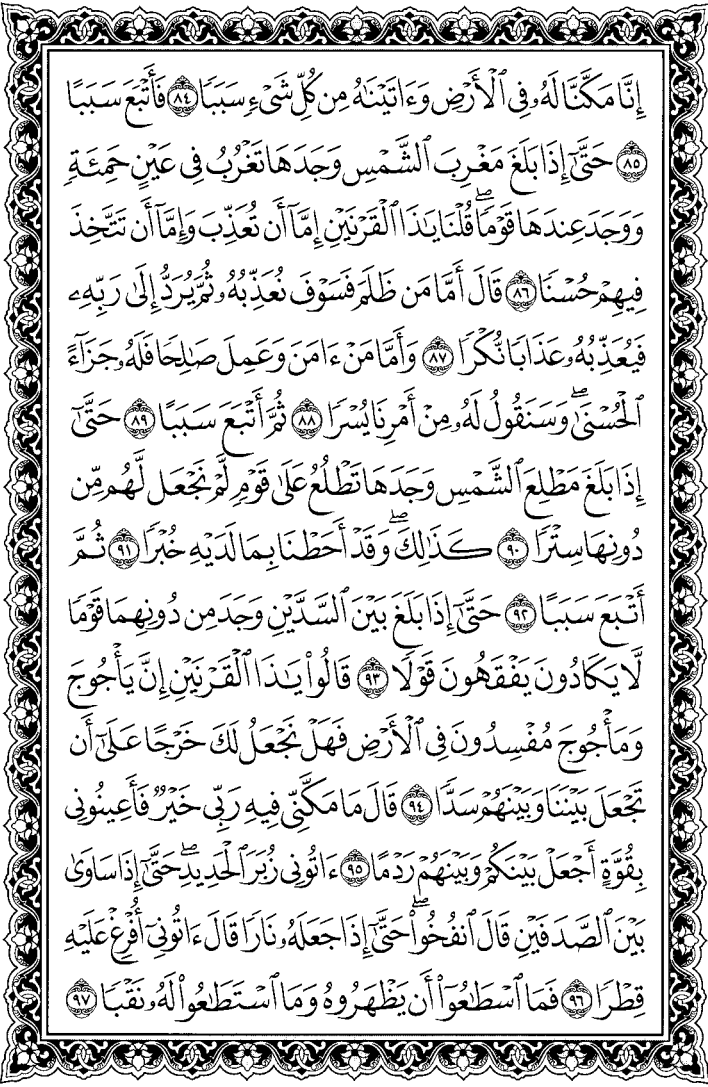 إِنَّا مَكَّنَّا لَهُۥ فِي ٱلْأَرْضِ وَءَاتَيْنَٰهُ مِن كُلِّ شَيْءٍ سَبَبًا ٨٤ فَأَتْبَعَ سَبَبًا
٨٥ حَتَّىٰٓ إِذَا بَلَغَ مَغْرِبَ ٱلشَّمْسِ وَجَدَهَا تَغْرُبُ فِي عَيْنٍ حَمِئَةٍ
وَوَجَدَ عِندَهَا قَوْمًاۖ قُلْنَا يَٰذَا ٱلْقَرْنَيْنِ إِمَّآ أَن تُعَذِّبَ وَإِمَّآ أَن تَتَّخِذَ
فِيهِمْ حُسْنًا ٨٦ قَالَ أَمَّا مَن ظَلَمَ فَسَوْفَ نُعَذِّبُهُۥ ثُمَّ يُرَدُّ إِلَىٰ رَبِّهِۦ
فَيُعَذِّبُهُۥ عَذَابًا نُّكْرًا ٨٧ وَأَمَّا مَنْ ءَامَنَ وَعَمِلَ صَٰلِحًا فَلَهُۥ جَزَآءً
ٱلْحُسْنَىٰۖ وَسَنَقُولُ لَهُۥ مِنْ أَمْرِنَا يُسْرًا ٨٨ ثُمَّ أَتْبَعَ سَبَبًا ٨٩ حَتَّىٰٓ
إِذَا بَلَغَ مَطْلِعَ ٱلشَّمْسِ وَجَدَهَا تَطْلُعُ عَلَىٰ قَوْمٍ لَّمْ نَجْعَل لَّهُم مِّن
دُونِهَا سِتْرًا ٩٠ كَذَٰلِكَۖ وَقَدْ أَحَطْنَا بِمَا لَدَيْهِ خُبْرًا ٩١ ثُمَّ
أَتْبَعَ سَبَبًا ٩٢ حَتَّىٰٓ إِذَا بَلَغَ بَيْنَ ٱلسَّدَّيْنِ وَجَدَ مِن دُونِهِمَا قَوْمًا
لَّا يَكَادُونَ يَفْقَهُونَ قَوْلًا ٩٣ قَالُوا۟ يَٰذَا ٱلْقَرْنَيْنِ إِنَّ يَأْجُوجَ
وَمَأْجُوجَ مُفْسِدُونَ فِي ٱلْأَرْضِ فَهَلْ نَجْعَلُ لَكَ خَرْجًا عَلَىٰٓ أَن
تَجْعَلَ بَيْنَنَا وَبَيْنَهُمْ سَدًّا ٩٤ قَالَ مَا مَكَّنِّي فِيهِ رَبِّي خَيْرٌ فَأَعِينُونِي
بِقُوَّةٍ أَجْعَلْ بَيْنَكُمْ وَبَيْنَهُمْ رَدْمًا ٩٥ ءَاتُونِي زُبَرَ ٱلْحَدِيدِۖ حَتَّىٰٓ إِذَا سَاوَىٰ
بَيْنَ ٱلصَّدَفَيْنِ قَالَ ٱنفُخُوا۟ۖ حَتَّىٰٓ إِذَا جَعَلَهُۥ نَارًا قَالَ ءَاتُونِيٓ أُفْرِغْ عَلَيْهِ
قِطْرًا ٩٦ فَمَا ٱسْطَٰعُوٓا۟ أَن يَظْهَرُوهُ وَمَا ٱسْتَطَٰعُوا۟ لَهُۥ نَقْبًا ٩٧